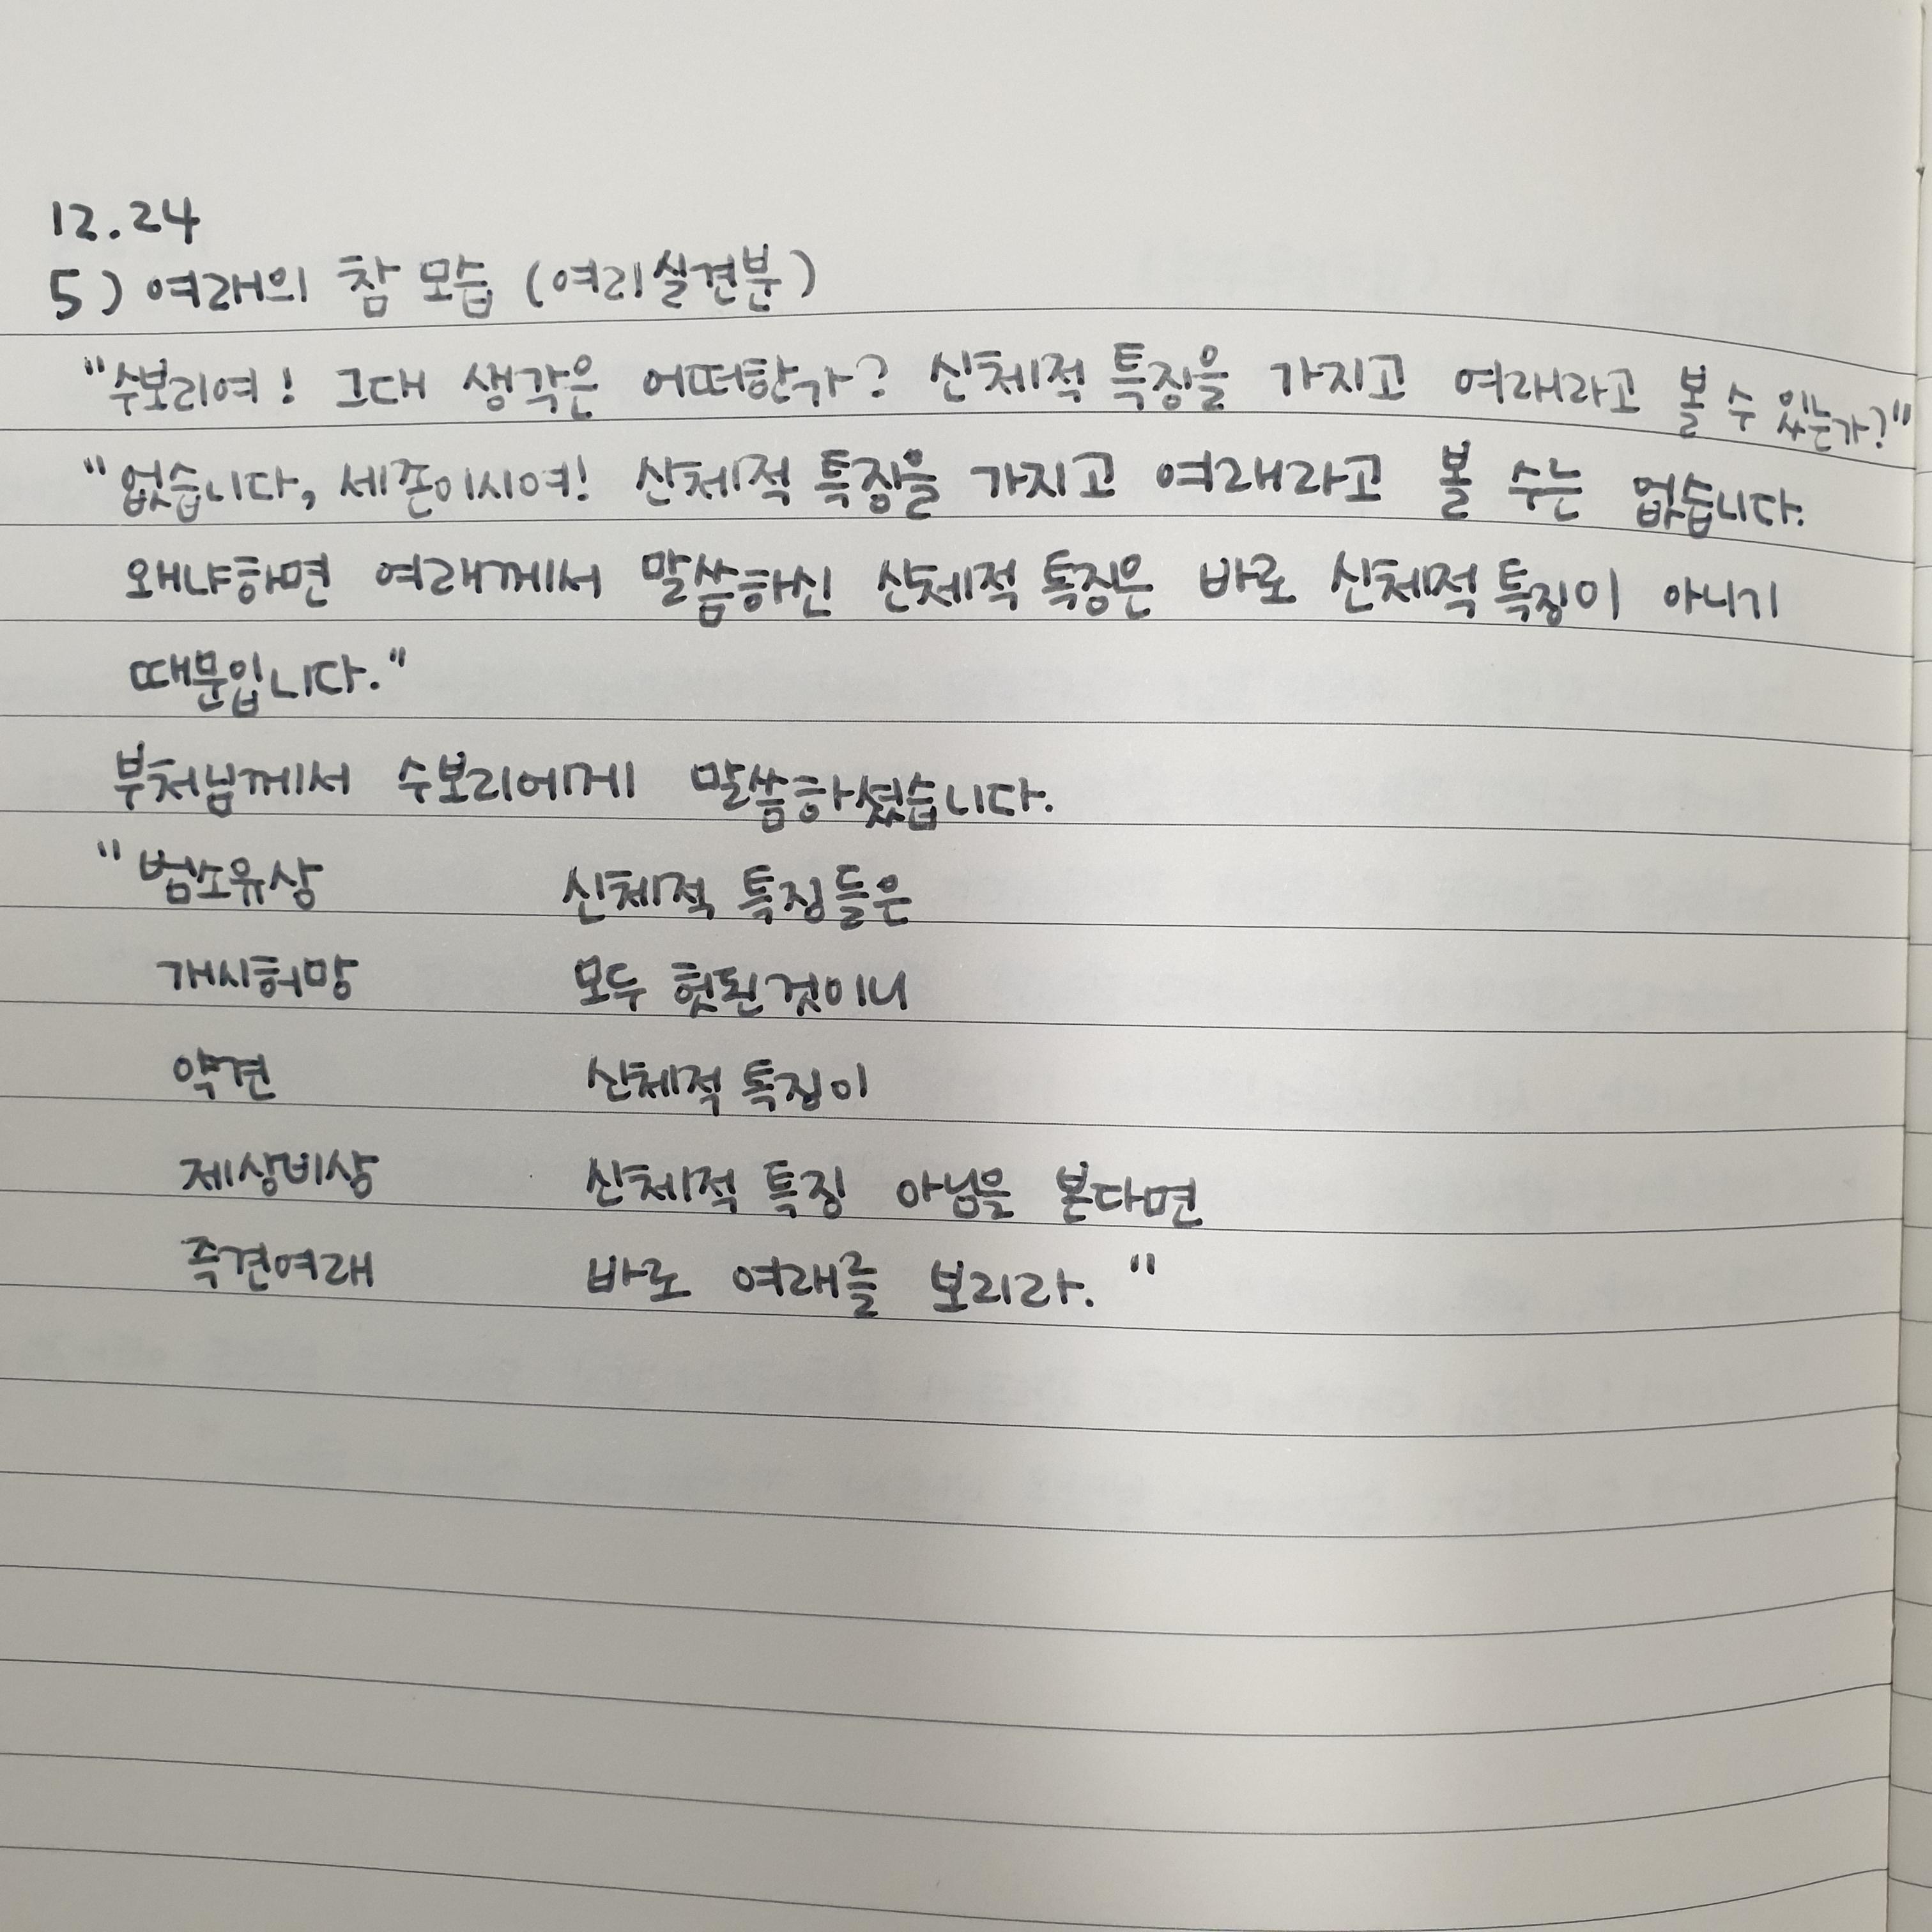 12.24
5) 여래의 참 모습 (여리실견분)
"수보리여! 그대 생각은 어떠한가? 신체적 특징을 가지고 여래라고 볼 수 있는가?"
"없습니다, 세존이시여! 신체적 특징을 가지고 여래라고 볼 수는 없습니다.
왜냐하면 여래께서 말씀하신 신체적 특징은 바로 신체적 특징이 아니기
때문입니다."
부처님께서 수보리에게 말씀하셨습니다.
"범소유상 신체적 특징들은
개시허망 모두 헛된것이니
약견 신체적 특징이
제상비상 신체적 특징 아님을 본다면
즉견여래 바로 여래를 보리라."